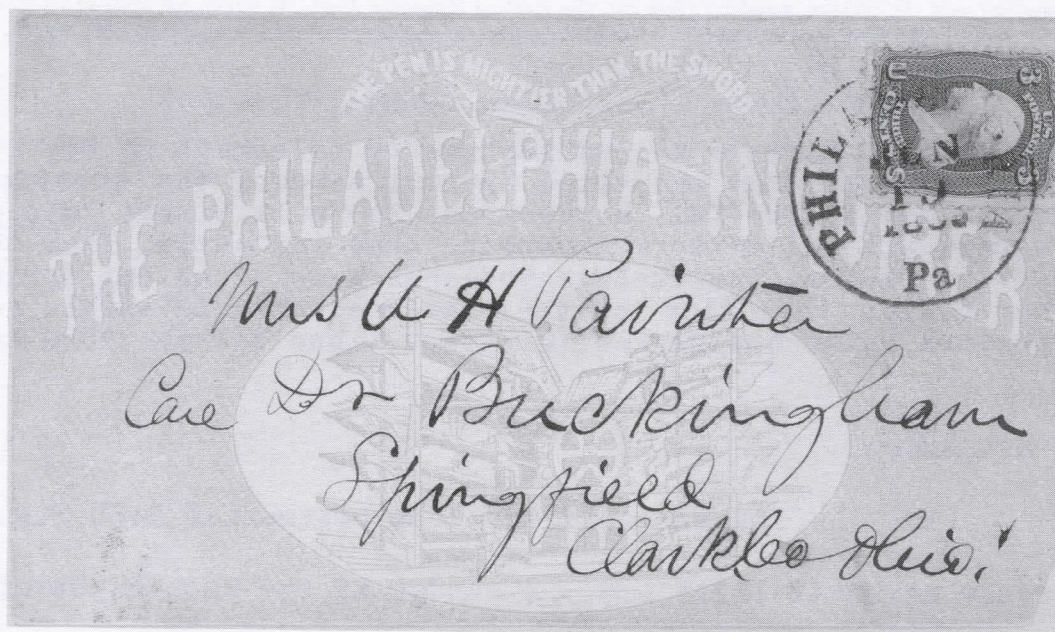 THE PEN IS MIGHTIER THAN THE SWORD
THE PHILADELPHIA INQUIRER.
U 3
U.S. POSTAGE
THREE CENTS
S 3
PHIL
Pa
Mrs U H Painter
Care Dr Buckingham
Springfield
Clark Co Ohio.